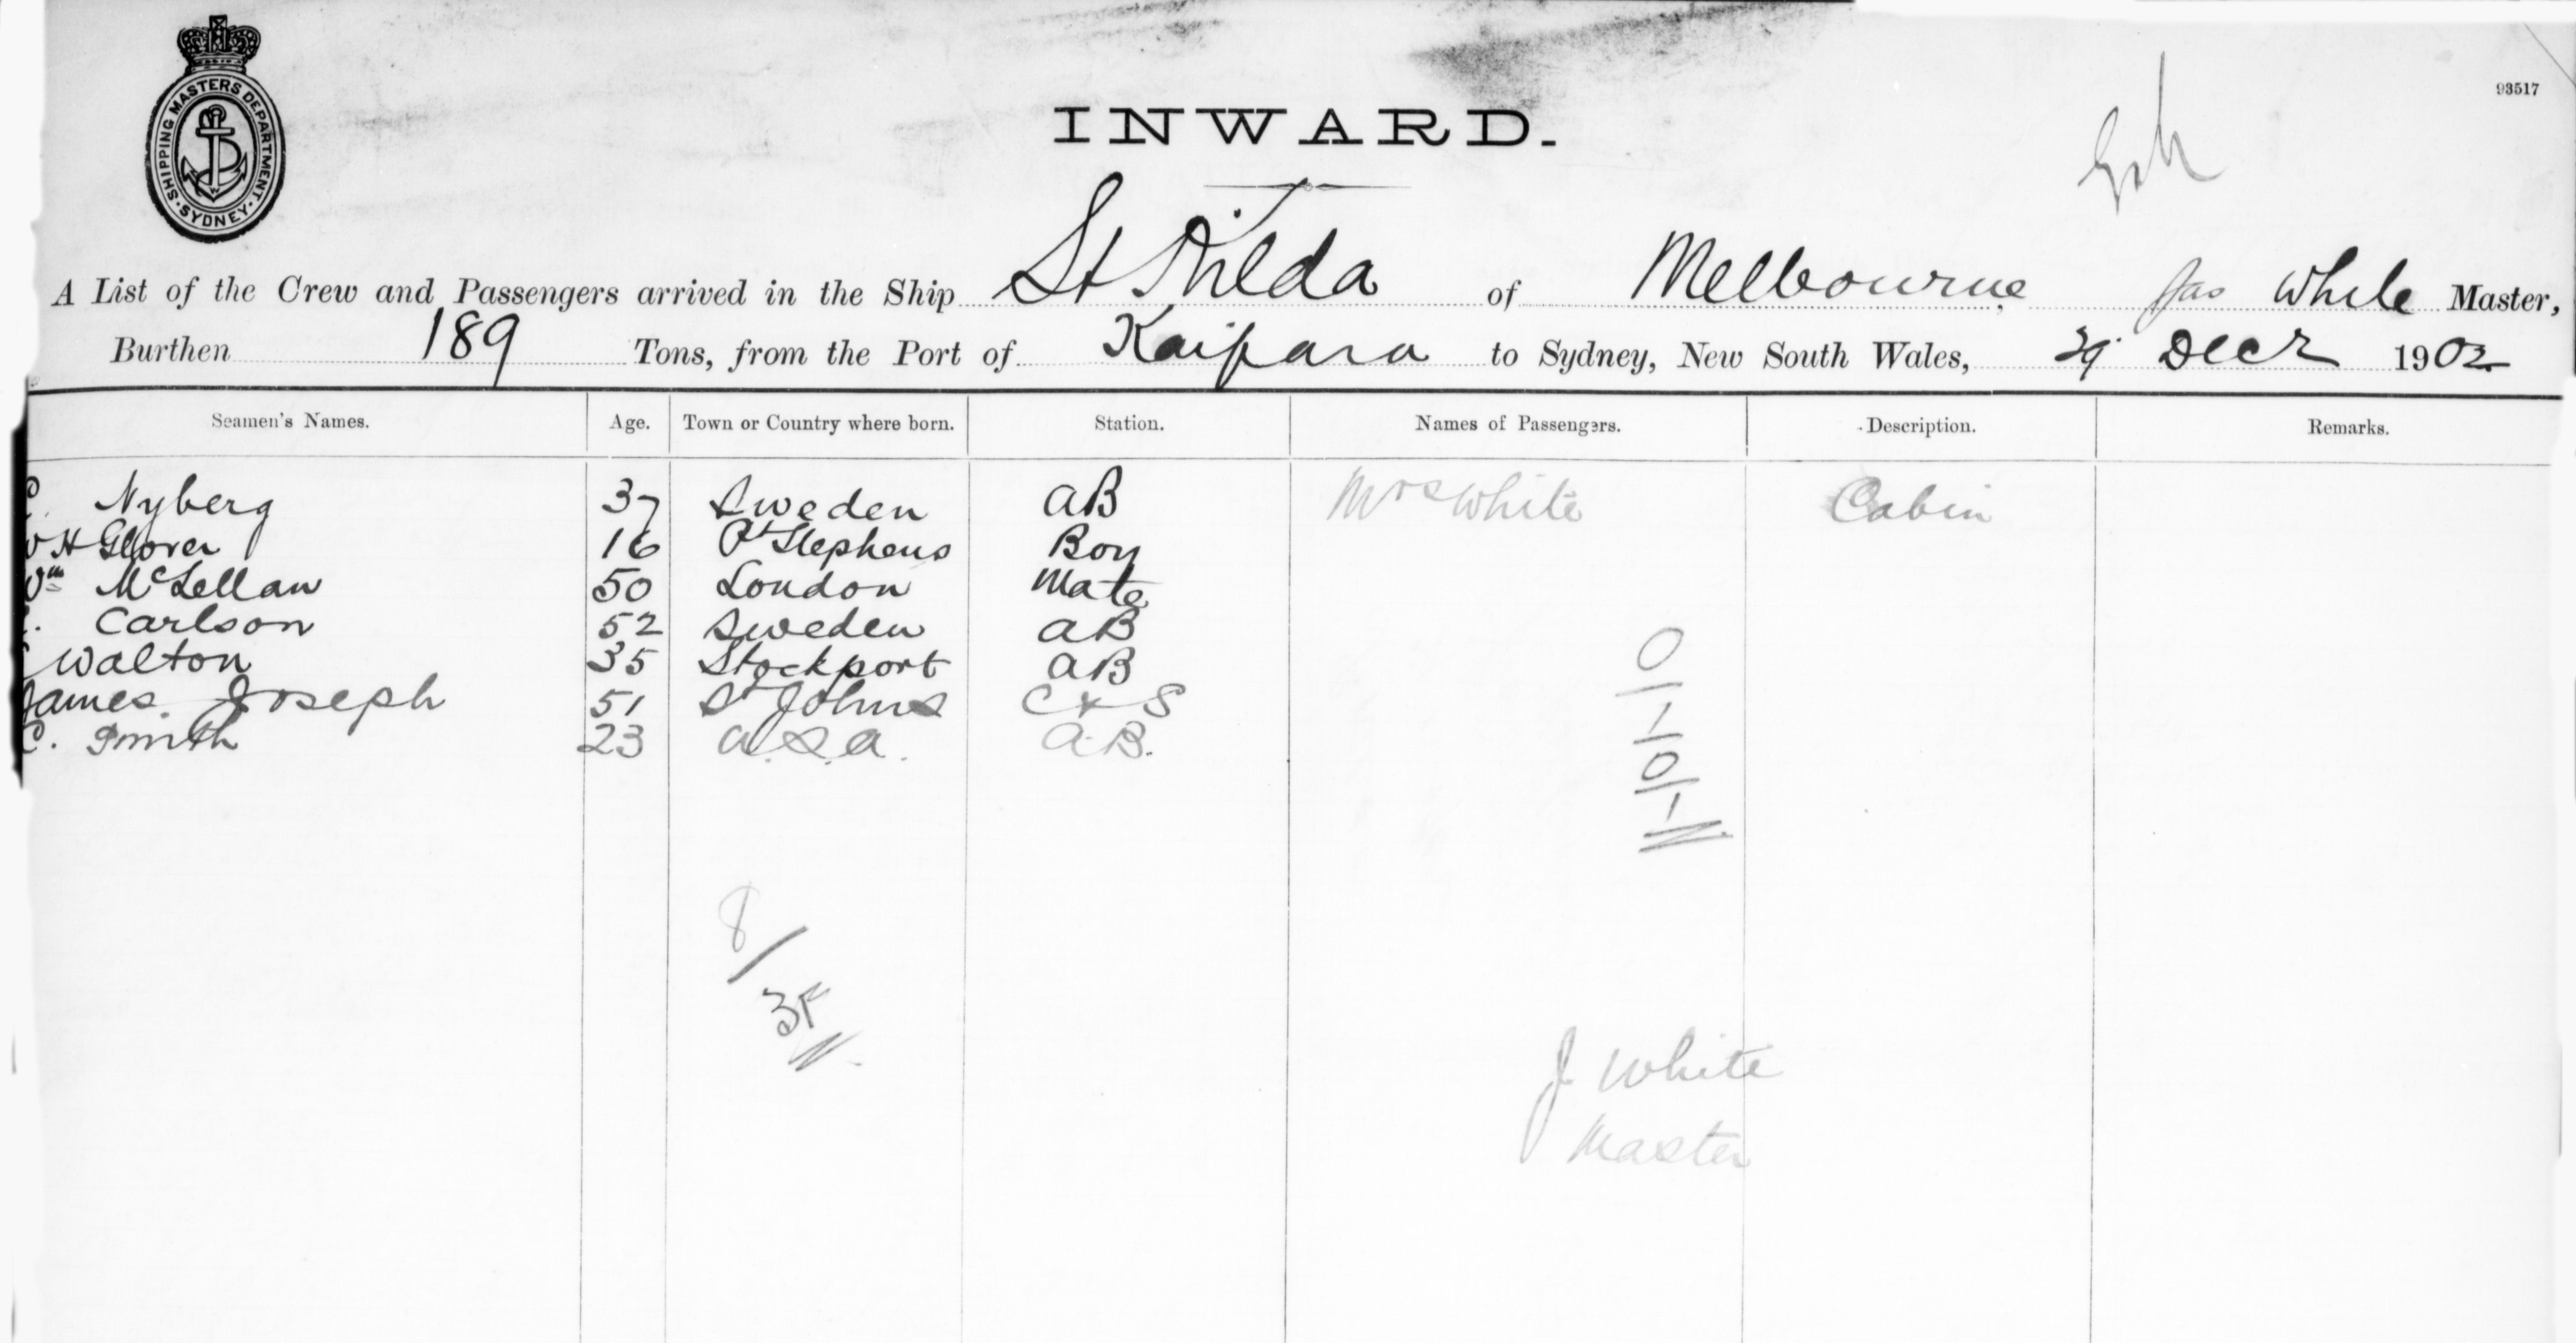 SHIPPING MASTERS DEPARTMENT
SYDNEY
93517
INWARD.
A List of the Crew and Passengers arrived in the Ship St Kilda of Melbourne Jas White Master,
Burthen 189 Tons, from the Port of Kaipara to Sydney, New South Wales, 29 Decr 1902
Seamen's Names. Age. Town or Country where born. Station. Names of Passengers. Description. Remarks.
Nyberg 37 Sweden AB Mrs White Cabin
W H Glover 16 Pt Stephens Boy
Wm McLellan 50 London Mate
Carlson 52 Sweden AB
Walton 35 Stockport AB
James Joseph 51 St Johns C & S
C. Smith 23 A.B.
0
1
0
1
8
J White
Master